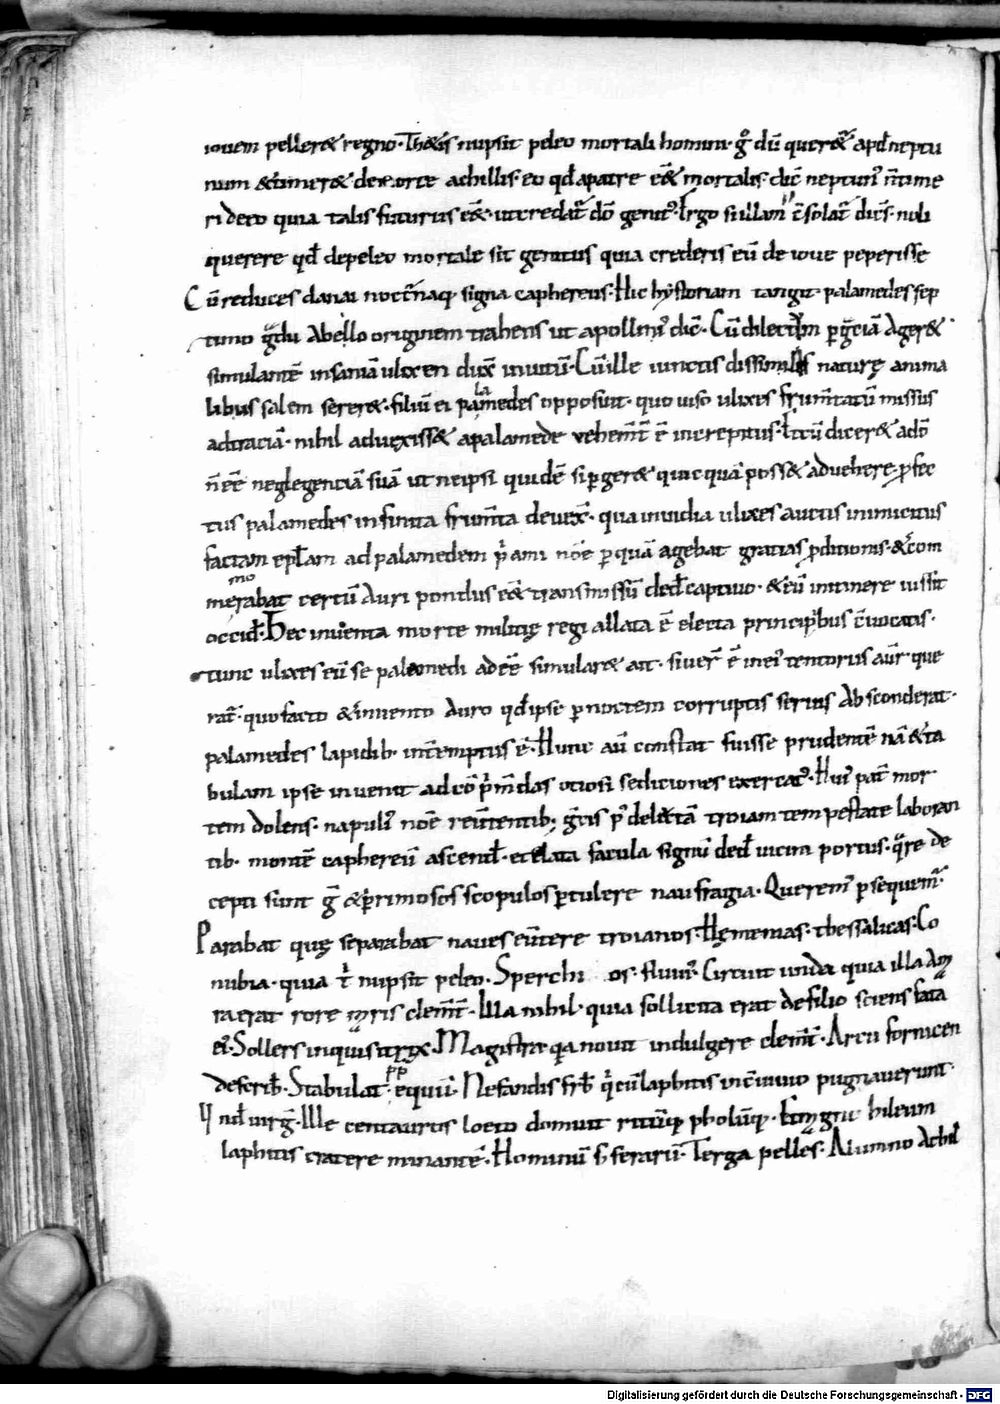 iouem peller& regno. Th&is nupsit peleo mortali homini. g̊ dū quer&̄ apđ neptu
num & timer& de morte achillis. eo qđ a patre eē& mortalis. dic̄ neptun᷒ n̄ time
ri debo quia talis futurus eē&. ut credat᷒ dō genit᷒. Ergo sic illam c̄solat᷒ dic̄s. noli
querere qđ de peleo mortale sit genitus quia crederis eū de ioue peperisse
Cū reduces danai nocťnaq; signa caphereus. Hic hystoriam tangit. palamedes sep
timo g̊du Abello originem trahens ut apollini᷒ dic̄. Cū dilectum p gciā Ager&
simulantē insaniā ulixen dux̄ inuitū. Cū ille iunctis dissimilis naturę anima
libus salem serer&. filiū ei palamedes opposuit. quo uiso ulixes frum̄tatū missus
ad traciā. nihil aduexiss& a palamede uehem̄t᷒ ē increpitus. Et cū dicer& adō
n̄ eē neglegentiā suā ut ne ipsi quidē si pger& quicquā poss& aduehere. pfec
tus palamedes infinita frum̄ta deuex̄. qua inuidia ulixes auctis inimicitiis
factam eplam ad palamedem p̄ami noē p quā agebat gratias pditionis. & com
memorabat certū Auri pondus eē& transmissū deđ captiuo. & eū in itinere iussit
occiđ. Hec inuenta morte militię regi allata ē electa principibus c̄uocatis.
tunc ulixes cū se palamedi adeē simular& ait. si uer᷒ ē in ei᷒ tentoriis aur᷒ que
rat᷒. quo facto & inuento Auro qđ ipse p noctem corruptis seruis Absconderat.
palamedes lapidib᷒ inťemptus ē. Hunc aū constat fuisse prudentē nā & ta
bulam ipse inuenit ad cōp̄m̄das otiosi seditiones exercit᷒. Hui᷒ pať mor
tem dolens. napuli᷒ noē reuťtentib; gcis p᷒ deletā troiam tempestate laboran
tib᷒. montē caphereū ascenđ. et elata facula signū deđ uicini portus. q̊re de
cepti sunt g̊ & p̄rimosos scopulos ptulere naufragia. Querem᷒ psequem᷒.
Parabat quę separabat naues euťtere troianos. Hęmenias. thessalicas. Co
nubia. quia ť nupsit peleo. Sperchi os. fluui᷒. Circuit unda quia illa Am
ra erat rore mris clem̄t᷒. Illa nihil. quia sollicita erat de filio sciens fata
ei᷒. Sollers inquisitrix. Magistra. qa nouit indulgere clem̄t᷒. Arcu fornicen
describ. Stabulat pp equū. Nefandis frb q̄ cū laphitis in c̄uiuio pugnauerunt.
Unđ uirg. Ille centaurus loeto domuit ritūq; pholūq;. Et mgno hileum
laphitis cratere minantē. Hominū s᷒ ferarū. Terga pelles. Alumno Achil